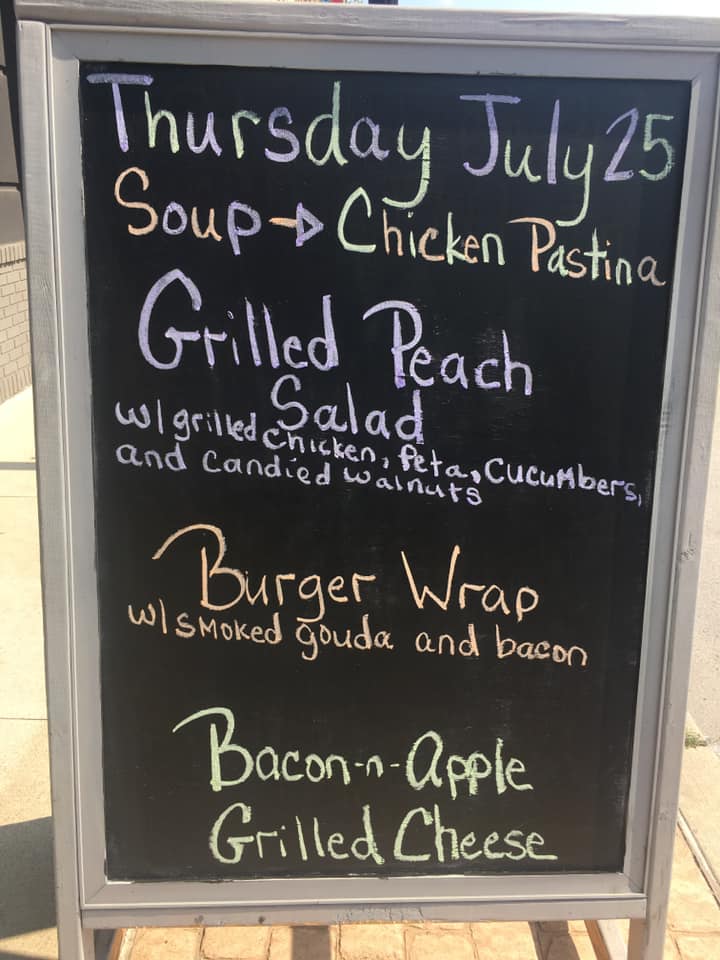 Thursday July 25
Soup → Chicken Pastina
Grilled Peach
Salad
w/ grilled chicken, feta, cucumbers,
and candied walnuts
Burger Wrap
w/ smoked gouda and bacon
Bacon-n-Apple
Grilled Cheese